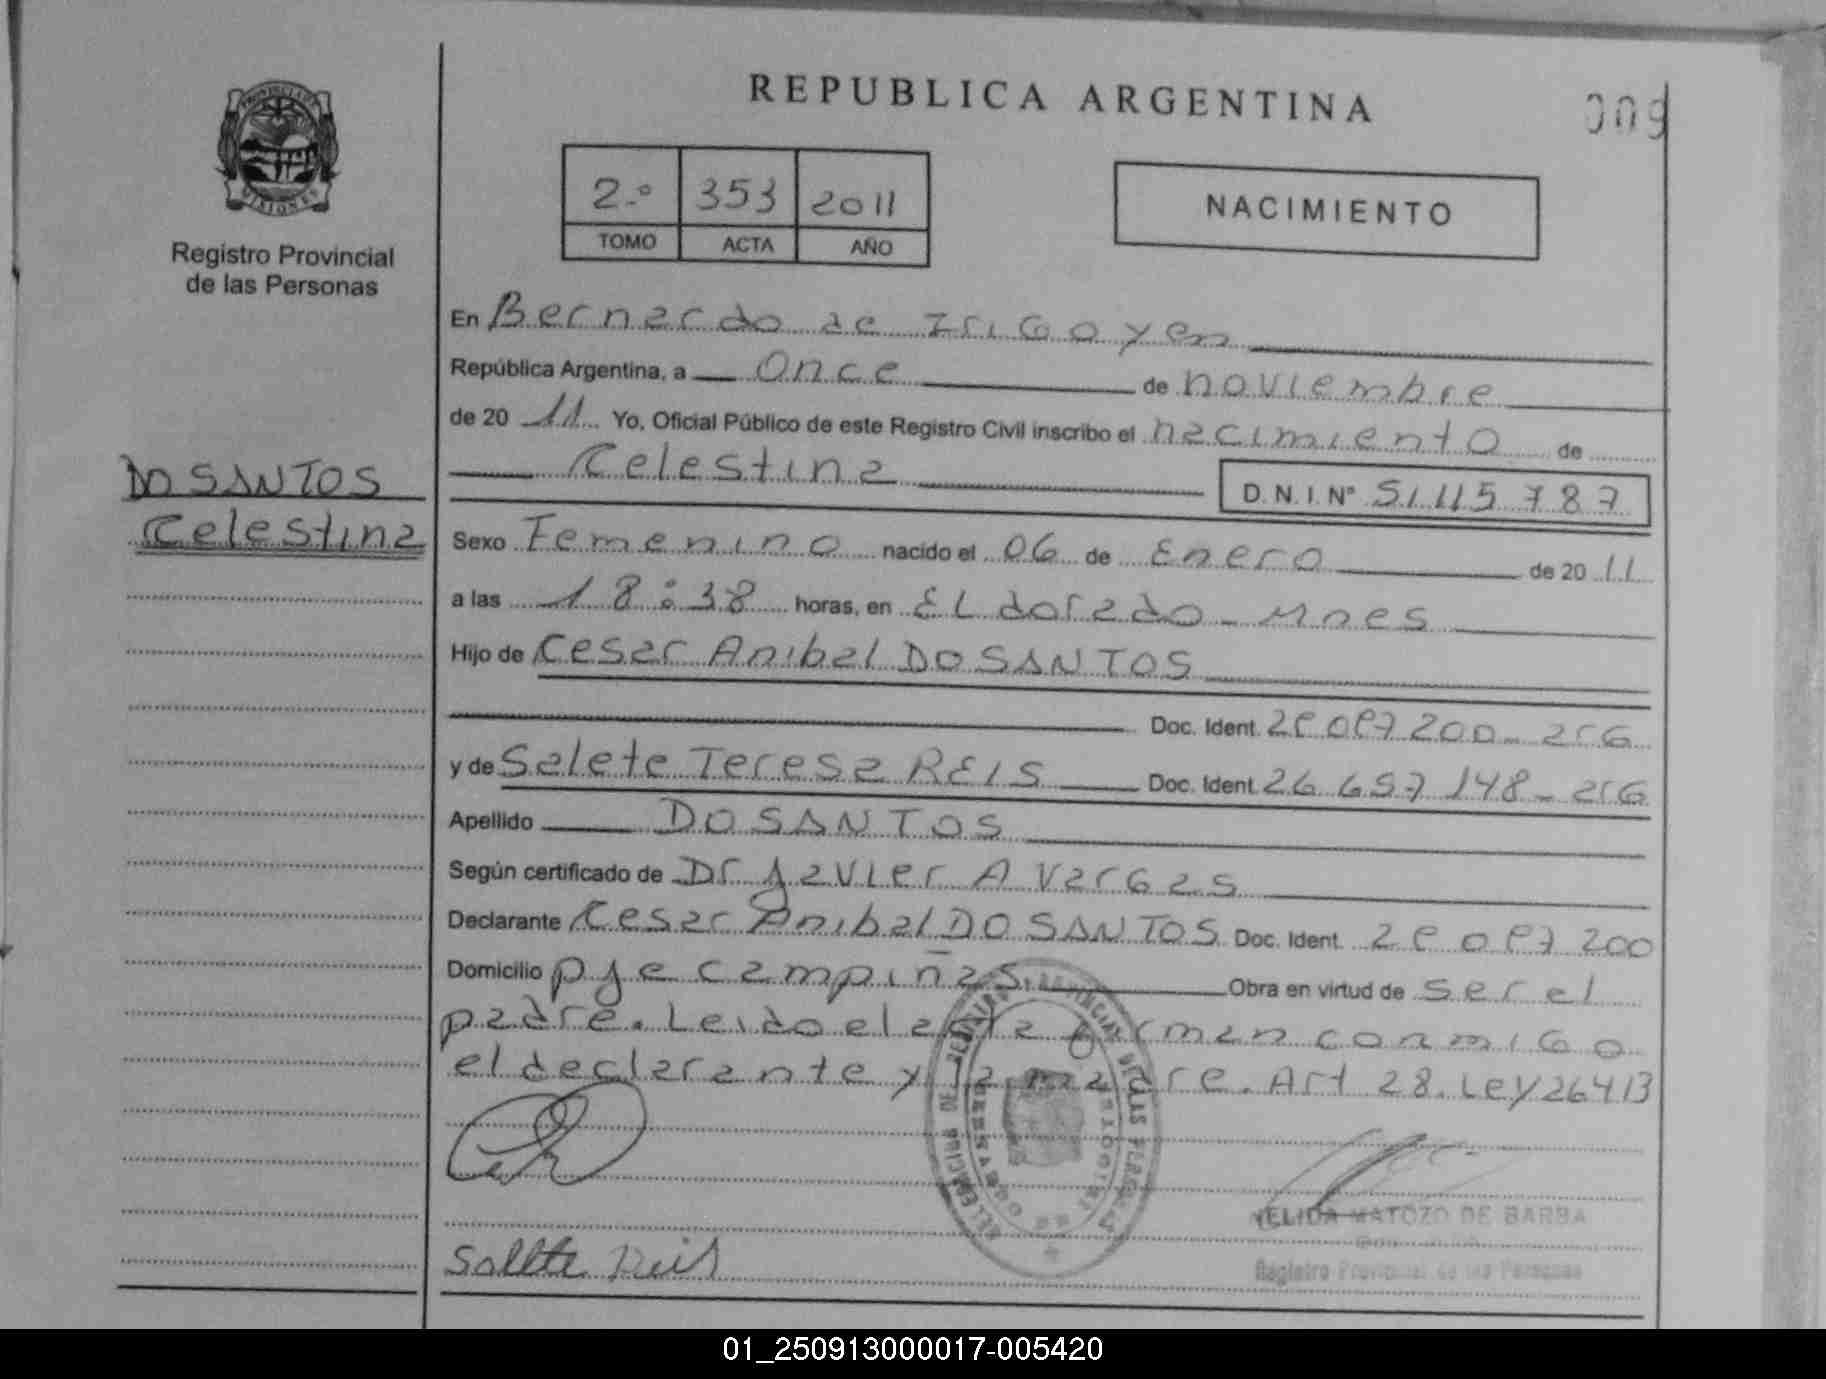 REPUBLICA ARGENTINA
009
PROVINCIA DE
MISIONES
Registro Provincial
de las Personas
2.º 353 2011
TOMO ACTA AÑO
NACIMIENTO
DO SANTOS
Celestina
En Bernardo de Irigoyen
República Argentina, a Once de noviembre
de 20 11 Yo, Oficial Público de este Registro Civil inscribo el nacimiento de
Celestina D.N.I.Nº 51.115.787
Sexo Femenino nacido el 06 de Enero de 20 11
a las 18:38 horas, en ELdorado - Mnes
Hijo de Cesar Anibal DO SANTOS
Doc. Ident.
y de Salete Teresa REIS Doc. Ident. 26.657.148-
Apellido DO SANTOS
Según certificado de Dr Javier A Vargas
Declarante Cesar Anibal DO SANTOS Doc. Ident.
Domicilio pje campiñas Obra en virtud de ser el
padre. Leido el acta firman conmigo
el declarante y la madre. Art 28. Ley 26413
NELIDA MATOZO DE BARBA
Registro Provincial de las Personas
Salete Reis
01_250913000017-005420